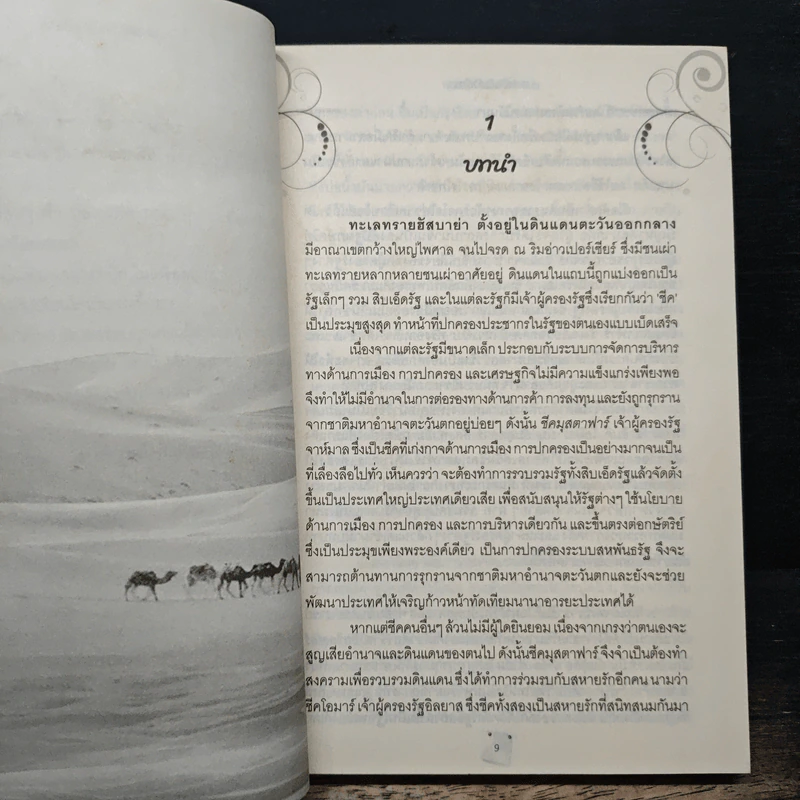 1
บทนำ
ทะเลทรายฮัสบาย่า ตั้งอยู่ในดินแดนตะวันออกกลาง
มีอาณาเขตกว้างใหญ่ไพศาล จนไปจรด ณ ริมอ่าวเปอร์เซียร์ ซึ่งมีชนเผ่า
ทะเลทรายหลากหลายชนเผ่าอาศัยอยู่ ดินแดนในแถบนี้ถูกแบ่งออกเป็น
รัฐเล็กๆ รวม สิบเอ็ดรัฐ และในแต่ละรัฐก็มีเจ้าผู้ครองรัฐซึ่งเรียกกันว่า 'ชีค'
เป็นประมุขสูงสุด ทำหน้าที่ปกครองประชากรในรัฐของตนเองแบบเบ็ดเสร็จ
เนื่องจากแต่ละรัฐมีขนาดเล็ก ประกอบกับระบบการจัดการบริหาร
ทางด้านการเมือง การปกครอง และเศรษฐกิจไม่มีความแข็งแกร่งเพียงพอ
จึงทำให้ไม่มีอำนาจในการต่อรองทางด้านการค้า การลงทุน และยังถูกรุกราน
จากชาติมหาอำนาจตะวันตกอยู่บ่อยๆ ดังนั้น ชีคมุสตาฟาร์ เจ้าผู้ครองรัฐ
จาห์มาล ซึ่งเป็นชีคที่เก่งกาจด้านการเมือง การปกครองเป็นอย่างมากจนเป็น
ที่เลื่องลือไปทั่ว เห็นควรว่า จะต้องทำการรวบรวมรัฐทั้งสิบเอ็ดรัฐแล้วจัดตั้ง
ขึ้นเป็นประเทศใหญ่ประเทศเดียวเสีย เพื่อสนับสนุนให้รัฐต่างๆ ใช้นโยบาย
ด้านการเมือง การปกครอง และการบริหารเดียวกัน และขึ้นตรงต่อกษัตริย์
ซึ่งเป็นประมุขเพียงพระองค์เดียว เป็นการปกครองระบบสหพันธรัฐ จึงจะ
สามารถต้านทานการรุกรานจากชาติมหาอำนาจตะวันตกและยังจะช่วย
พัฒนาประเทศให้เจริญก้าวหน้าทัดเทียมนานาอารยะประเทศได้
หากแต่ชีคคนอื่นๆ ล้วนไม่มีผู้ใดยินยอม เนื่องจากเกรงว่าตนเองจะ
สูญเสียอำนาจและดินแดนของตนไป ดังนั้นชีคมุสตาฟาร์ จึงจำเป็นต้องทำ
สงครามเพื่อรวบรวมดินแดน ซึ่งได้ทำการร่วมรบกับสหายรักอีกคน นามว่า
ชีคโอมาร์ เจ้าผู้ครองรัฐอิลยาส ซึ่งชีคทั้งสองเป็นสหายรักที่สนิทสนมกันมา
9